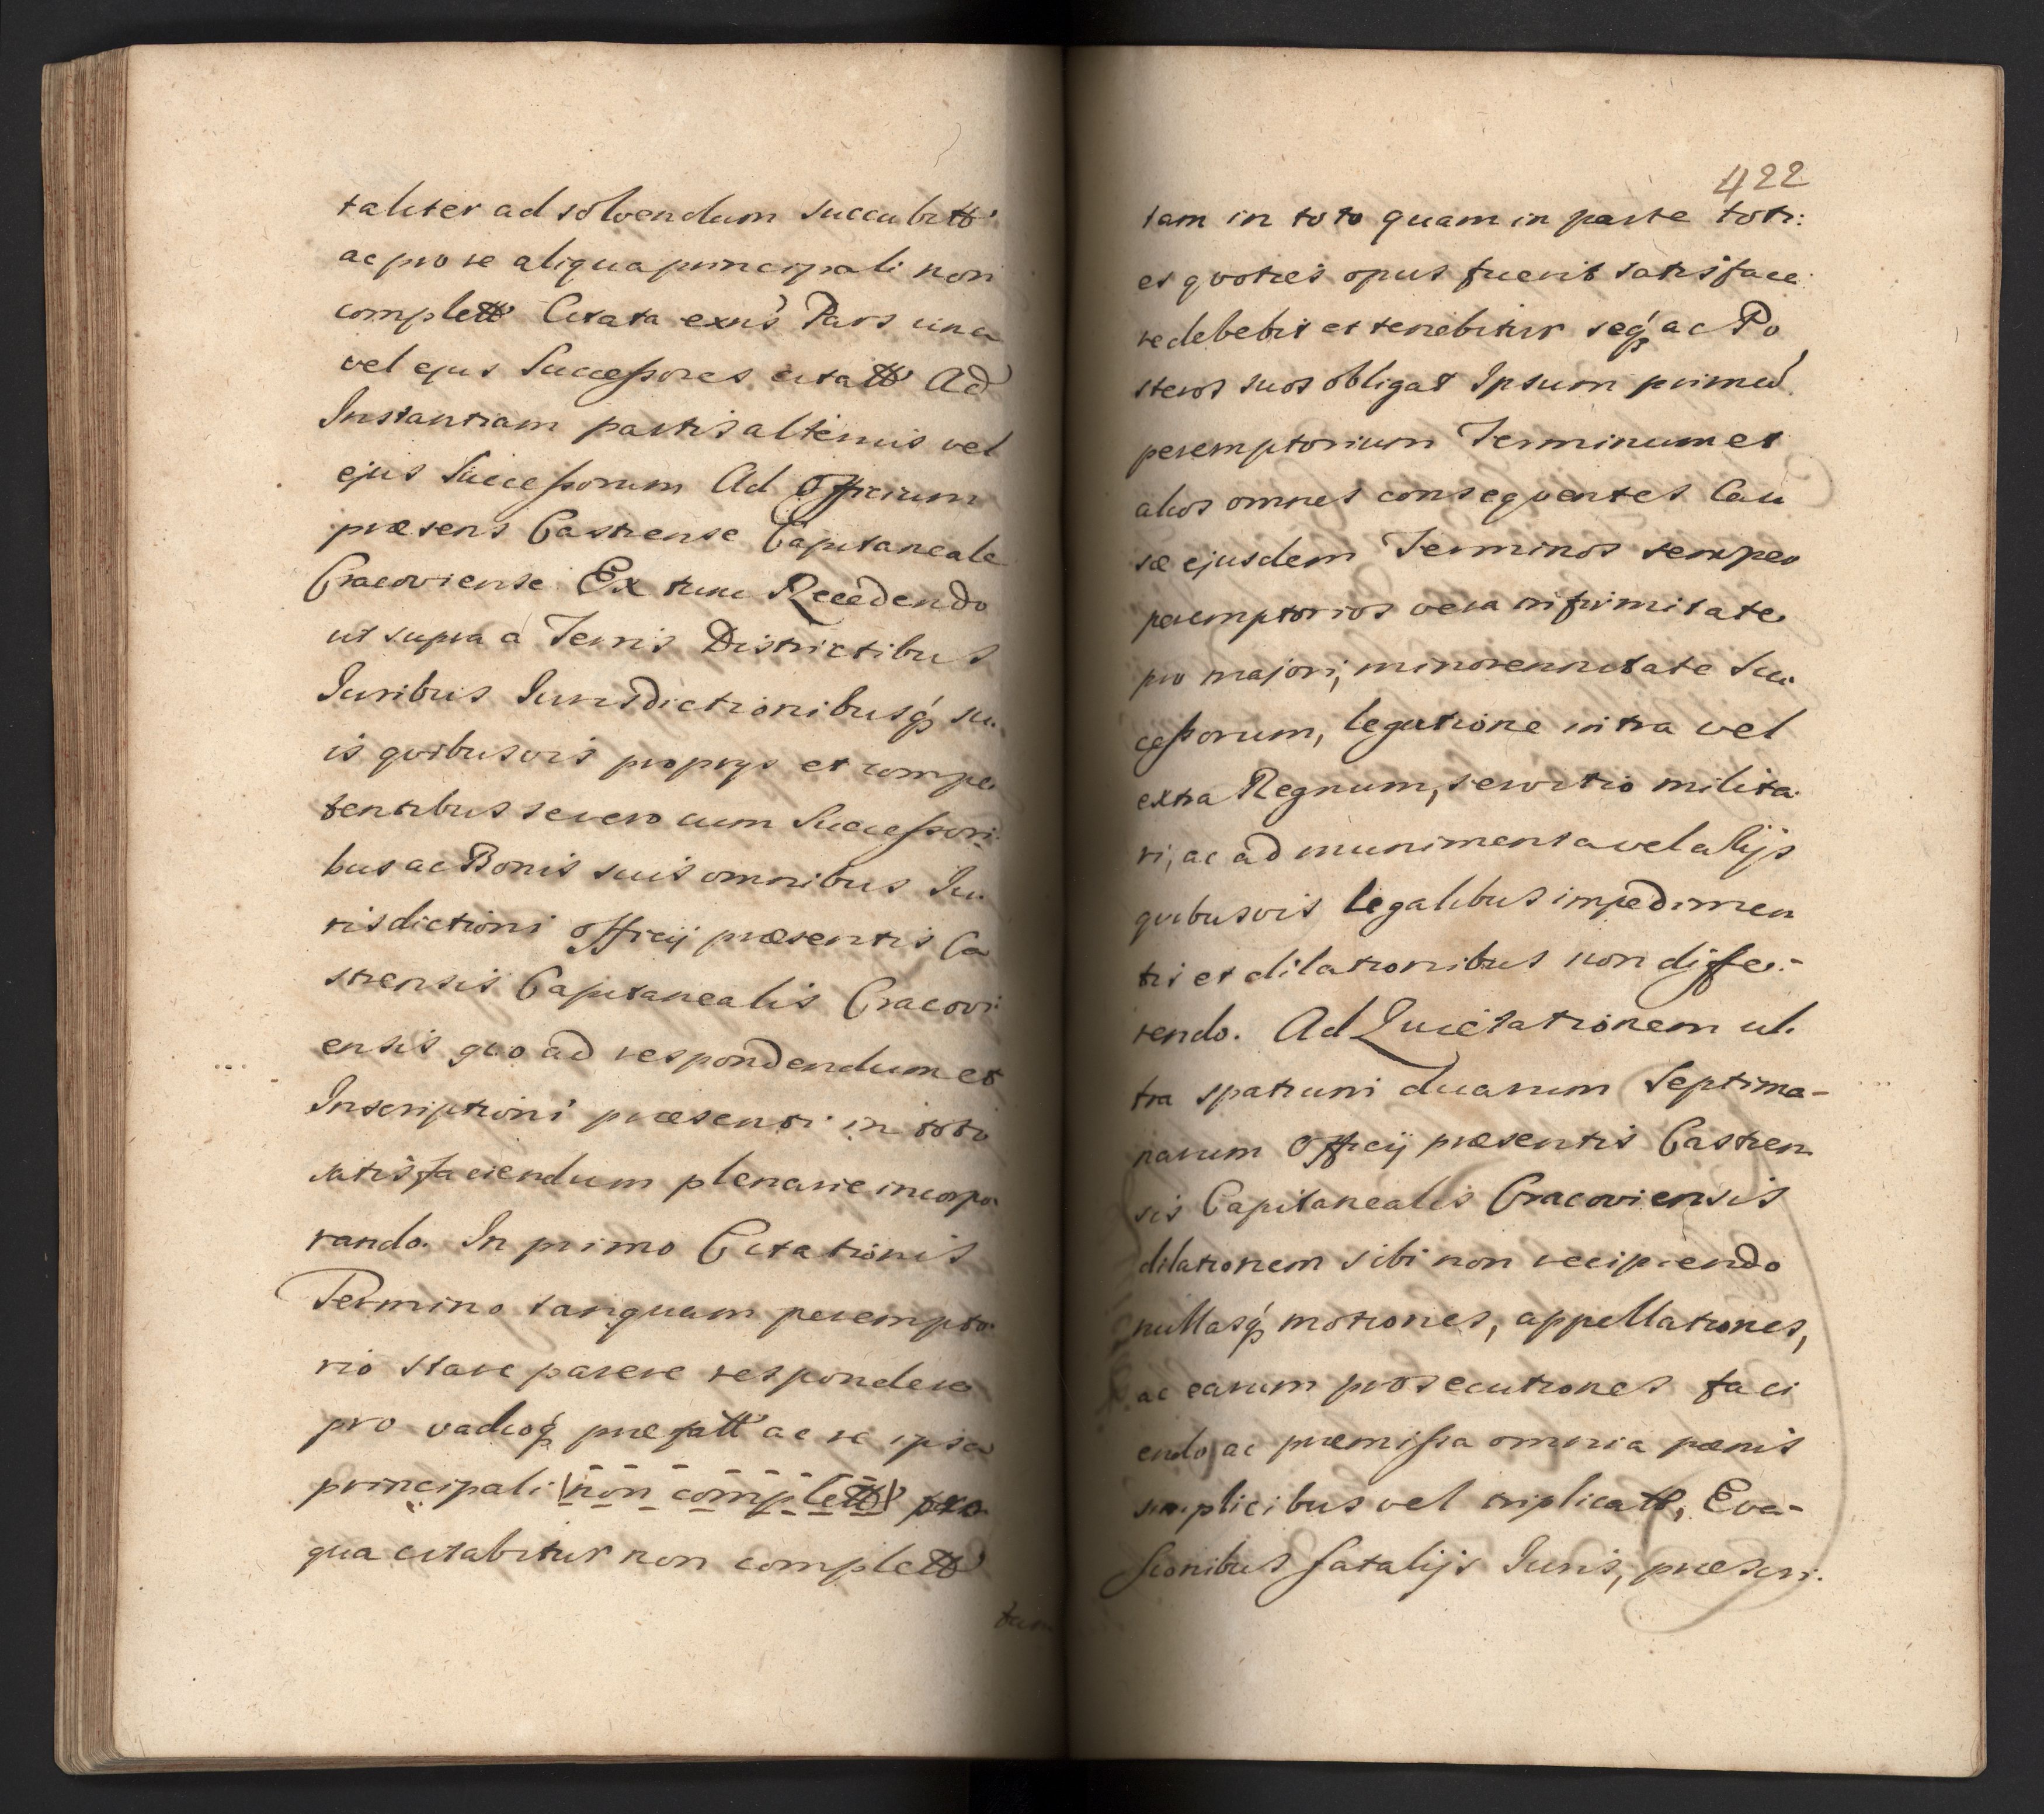 taliter ad solvendum succubitt
ac pro re aliqua principali non
complett Citata exnis Pars una
vel ejus Successores citatt Ad
Instantiam partis alterius vel
ejus Successorum Ad Officium
præsens Castrense Capitaneale
Cracoviense Ex tunc Recedendo
ut supra a Terris Districtibus
Juribus Jurisdictionibusq su
is quibusvis proprys et compe
tentibus se vero cum Successori
bus ac Bonis suis omnibus Ju
risdictioni officij præsentis Ca
strensis Capitanealis Cracovi
ensis quo ad respondendum et
Inscriptioni præsenti in toto
satisfaciendum plenarie incorpo
rando. In primo Citationis
Termino tanquam perempto
rio stare parere respondere
pro vadioq præfatt ac re ipsa
principali non complett pro
qua citabitur non complett
tam
422
tam in toto quam in parte toti:
es quoties opus fuerit satisface
re debebit et tenebitur seq ac Po
steros suos obligat Ipsum primu
peremptorium Terminum et
alios omnes consequentes Cau
sæ ejusdem Terminos semper
peremptorios vera infirmitate
pro majori, minorennitate Suc
cessorum, legatione intra vel
extra Regnum, servitio milita
ri, ac ad munimenta vel alijs
quibusvis legalibus impedimen
tis et dilationibus non diffe:
rendo. Ad Quietationem ul
tra spatium duarum Septima-
narum Officij præsentis Castren
sis Capitanealis Cracoviensis
dilationem sibi non recipiendo
nullasq motiones, appellationes,
ac earum prosecutiones faci
endo, ac præmissa omnia pænis
simplicibus vel triplicatt, Eva-
sionibus fatalijs Juris, præscri